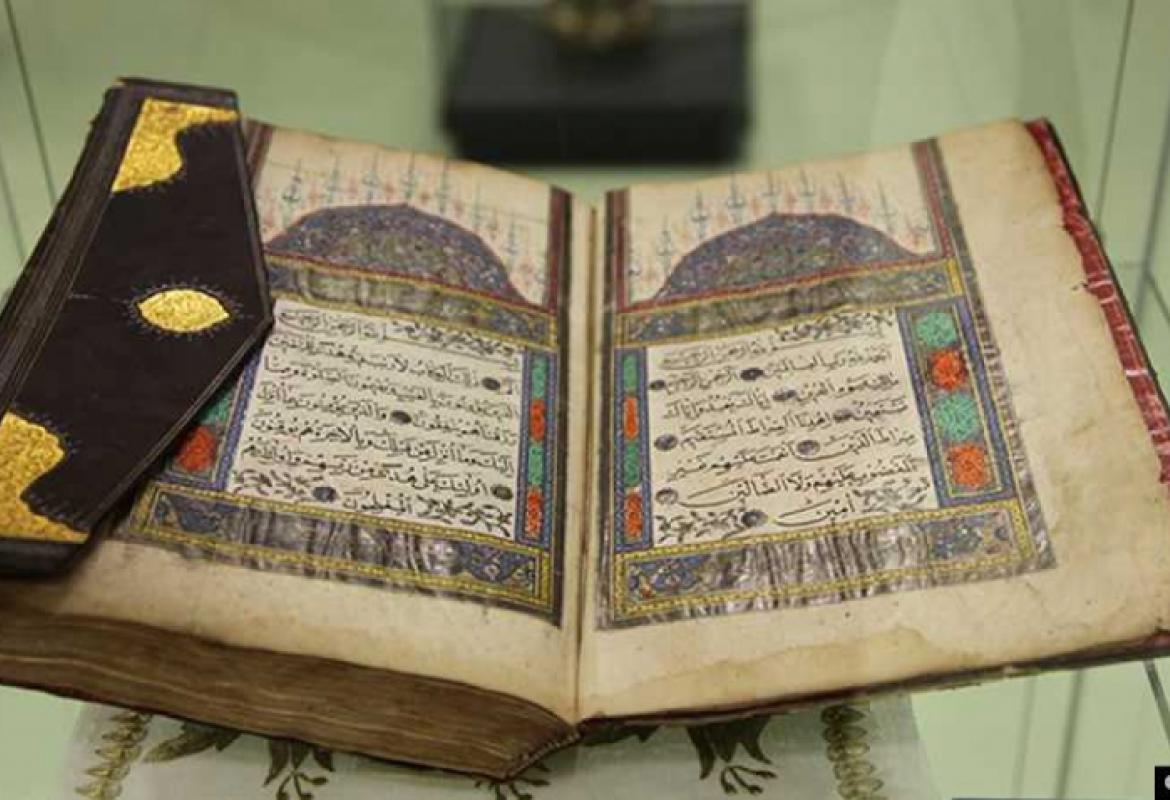 بسم الله الرحمن الرحيم
الحمد لله رب العالمين الرحمن الرحيم
مالك يوم الدين اياك نعبد واياك
نستعين اهدنا الصراط المستقيم
صراط الذين انعمت عليهم غير
المغضوب عليهم ولا الضالين
امين
بسم الله الرحمن الرحيم
الم ذلك الكتاب لا ريب فيه هدى للمتقين
الذين يؤمنون بالغيب ويقيمون الصلوة ومما
رزقناهم ينفقون والذين يؤمنون بما انزل
اليك وما انزل من قبلك وبالاخرة هم يوقنون
اولئك على هدى من ربهم واولئك هم
المفلحون